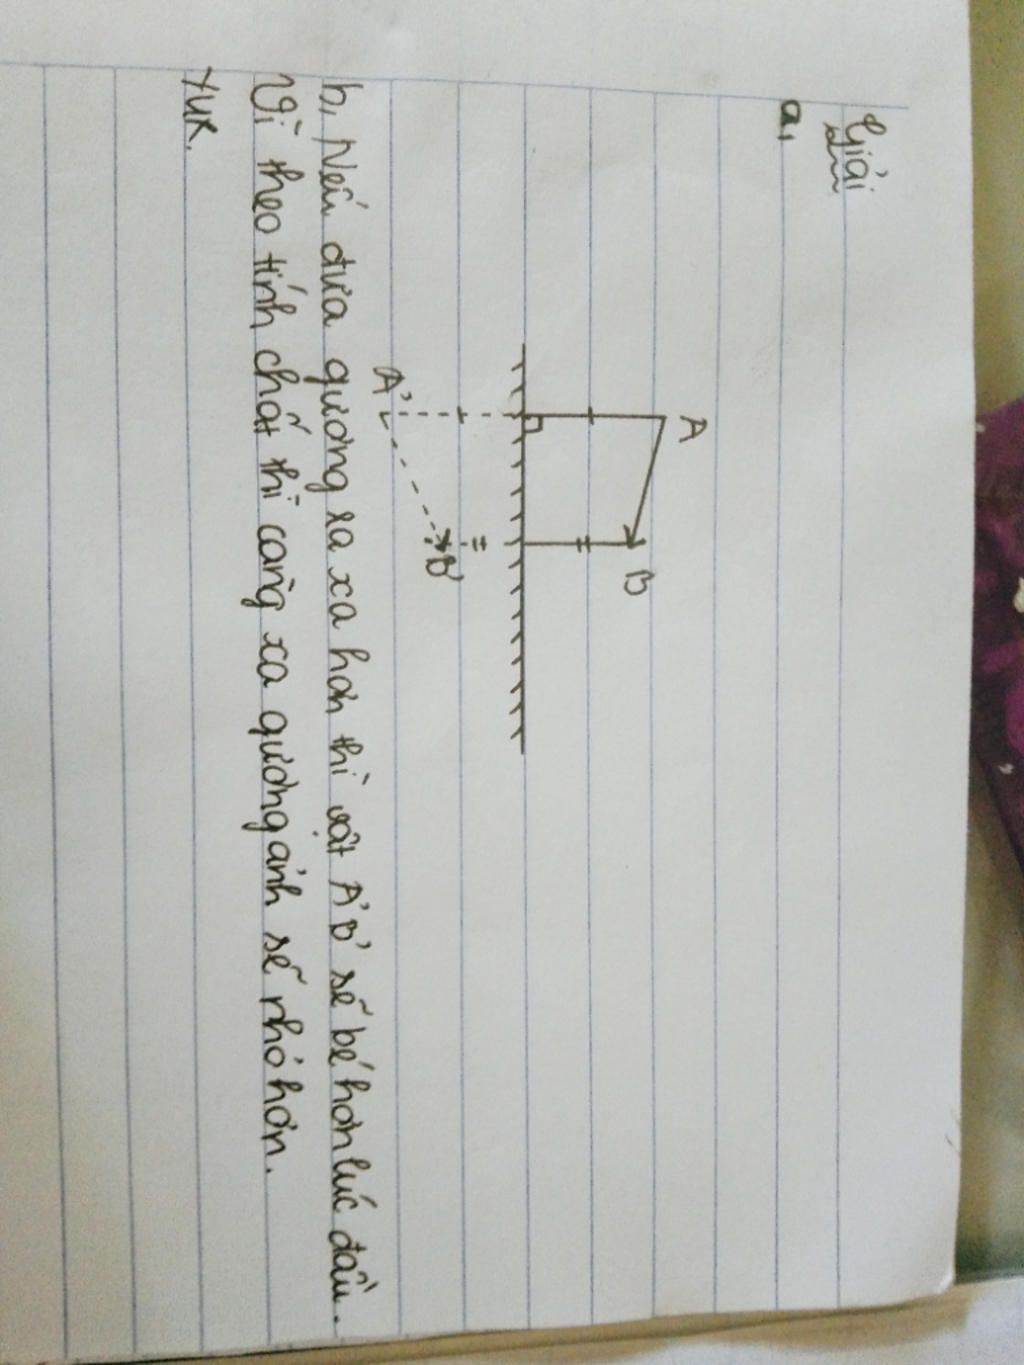 Giải
a,
A
B
A'
B'
b, Nếu đưa gương ra xa hơn thì vật A'B' sẽ bé hơn lúc đầu.
Vì theo tính chất thì càng xa gương ảnh sẽ nhỏ hơn.
YUK.